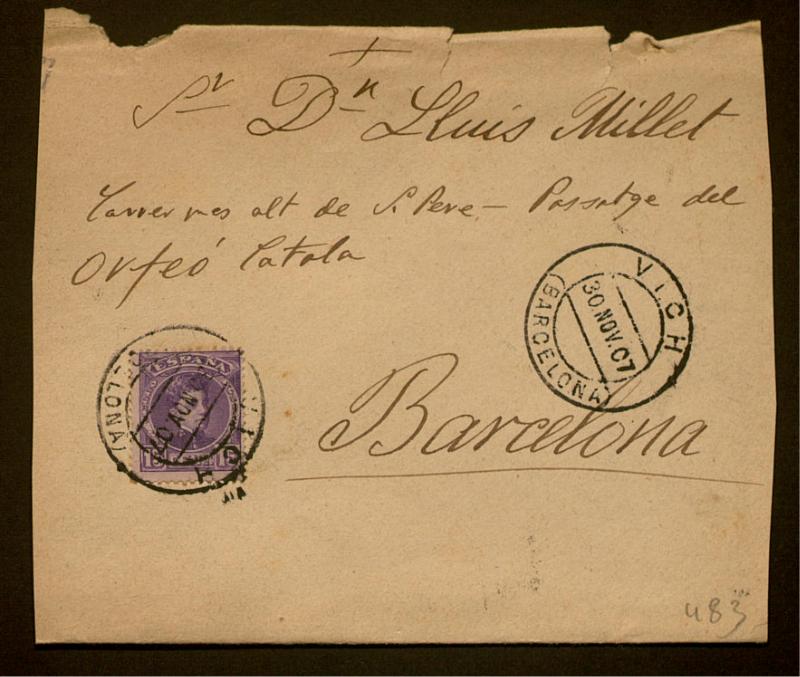 Sr Dn Lluis Millet
Carrer mes alt de S. Pere - Passatge del
Orfeó Catala
VICH
30.NOV.07
(BARCELONA)
ESPAÑA
15
30 NOV 07
Barcelona
483